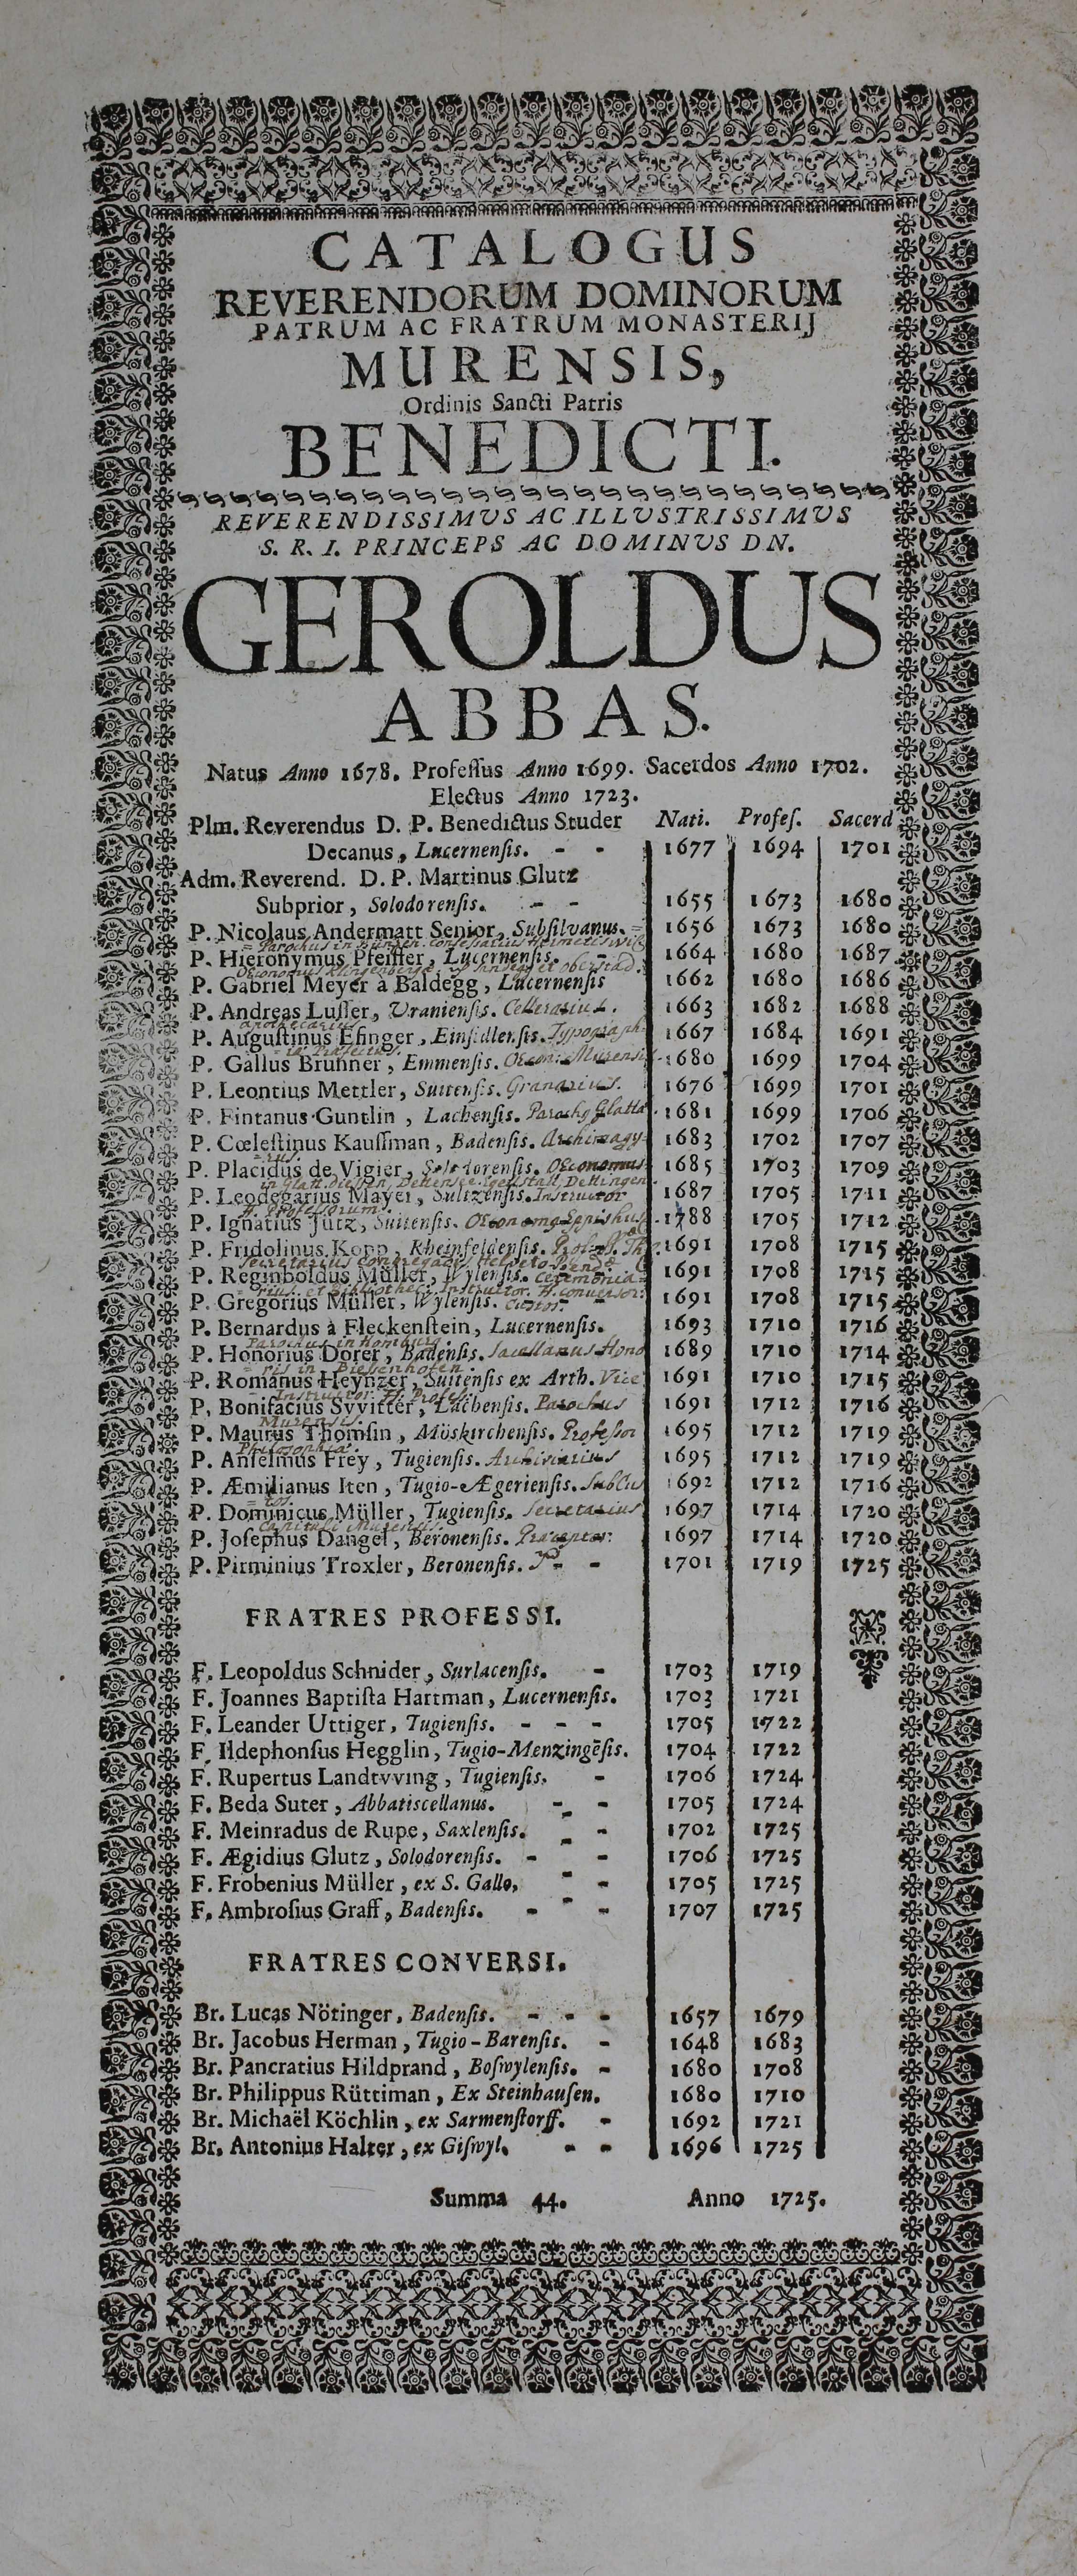 CATALOGUS
REVERENDORUM DOMINORUM
PATRUM AC FRATRUM MONASTERIJ
MURENSIS,
Ordinis Sancti Patris
BENEDICTI.
REVERENDISSIMVS AC ILLVSTRISSIMVS
S. R. I. PRINCEPS AC DOMINVS DN.
GEROLDUS
ABBAS.
Natus Anno 1678. Professus Anno 1699. Sacerdos Anno 1702.
Electus Anno 1723.
Plm. Reverendus D. P. Benedictus Studer Nati. Profeſ. Sacerd
Decanus, Lucernenſis. - - 1677 1694 1701
Adm. Reverend. D. P. Martinus Glutz
Subprior, Solodorenſis. - - 1655 1673 1680
P. Nicolaus Andermatt Senior, Subſilvanus. 1656 1673 1680
= Parochus in Bünzen. confessarius
P. Hieronymus Pfeiffer, Lucernenſis. - 1664 1680 1687
OEconomus Klingenbergae
P. Gabriel Meyer à Baldegg, Lucernenſis 1662 1680 1686
P. Andreas Luſſer, Uranienſis. Cellerarius. 1663 1682 1688
apothecarius
P. Auguſtinus Eſinger, Einſidlenſis. Typograph= 1667 1684 1691
= iae Praefectus.
P. Gallus Brunner, Emmenſis. OEcon: Murensis. 1680 1699 1704
P. Leontius Mettler, Suitenſis. Granarius. 1676 1699 1701
P. Fintanus Guntlin, Lachenſis. Parochg Glatta. 1681 1699 1706
P. Cœleſtinus Kauſſman, Badenſis. Archimagy= 1683 1702 1707
= rus.
P. Placidus de Vigier, Solodorenſis. OEconomus 1685 1703 1709
in Glatt. diessen, Dettensee. Egelstall, Dettingen
P. Leodegarius Mayer, Sultzenſis. Instructor 1687 1705 1711
ff. Professorum.
P. Ignatius Jütz, Suitenſis. OEconomg Eppishus. 1788 1705 1712
P. Fridolinus Kopp, Rheinfeldenſis. Prof. S. Th. 1691 1708 1715
Secretarius Congregaois Helveto-Bend.
P. Reginboldus Müller, Wylenſis. Ceremonia= 1691 1708 1715
= rius, et Bibliothec: Instructor. ff. conversor:
P. Gregorius Müller, Wylenſis. Custos. - 1691 1708 1715
P. Bernardus à Fleckenſtein, Lucernenſis. 1693 1710 1716
Parochus in Homburg
P. Honorius Dorer, Badenſis. Sacellanus Hono 1689 1710 1714
= ris in Biessenhofen.
P. Romanus Heynzer, Suitenſis ex Arth. Vice 1691 1710 1715
= Instructor ff. Profess.
P. Bonifacius Svvitter, Lachenſis. Parochus 1691 1712 1716
Murensis.
P. Maurus Thomſin, Möskirchenſis. Professor 1695 1712 1719
Philosophiae.
P. Anſelmus Frey, Tugienſis. Archivarius 1695 1712 1719
P. Æmilianus Iten, Tugio-Ægerienſis. SubCus 1692 1712 1716
= tos.
P. Dominicus Müller, Tugienſis. Secretarius 1697 1714 1720
Capituli Murensis.
P. Joſephus Dangel, Beronenſis. Praeceptor. 1697 1714 1720
P. Pirminius Troxler, Beronenſis. - - 1701 1719 1725
FRATRES PROFESSI.
F. Leopoldus Schnider, Surlacenſis. - 1703 1719
F. Joannes Baptiſta Hartman, Lucernenſis. 1703 1721
F. Leander Uttiger, Tugienſis. - - - 1705 1722
F. Ildephonſus Hegglin, Tugio-Menzingēſis. 1704 1722
F. Rupertus Landtvving, Tugienſis. - 1706 1724
F. Beda Suter, Abbatiscellanus. - - 1705 1724
F. Meinradus de Rupe, Saxlenſis. - - 1702 1725
F. Ægidius Glutz, Solodorenſis. - - 1706 1725
F. Frobenius Müller, ex S. Gallo, - - 1705 1725
F. Ambroſius Graff, Badenſis. - - - 1707 1725
FRATRES CONVERSI.
Br. Lucas Nötinger, Badenſis. - - - 1657 1679
Br. Jacobus Herman, Tugio-Barenſis. - 1648 1683
Br. Pancratius Hildprand, Boſwylenſis. - 1680 1708
Br. Philippus Rüttiman, Ex Steinhauſen. 1680 1710
Br. Michaël Köchlin, ex Sarmenſtorff. - 1692 1721
Br. Antonius Halter, ex Giſwyl. - - 1696 1725
Summa 44. Anno 1725.